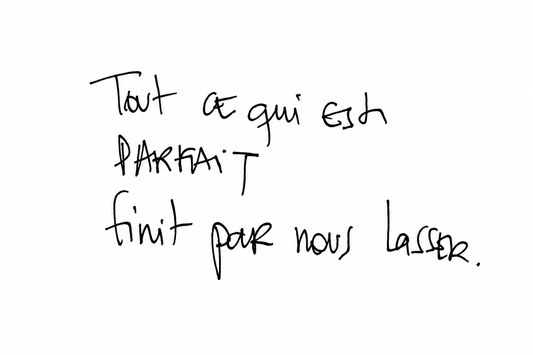 Tout ce qui est
PARFAIT
finit par nous lasser.